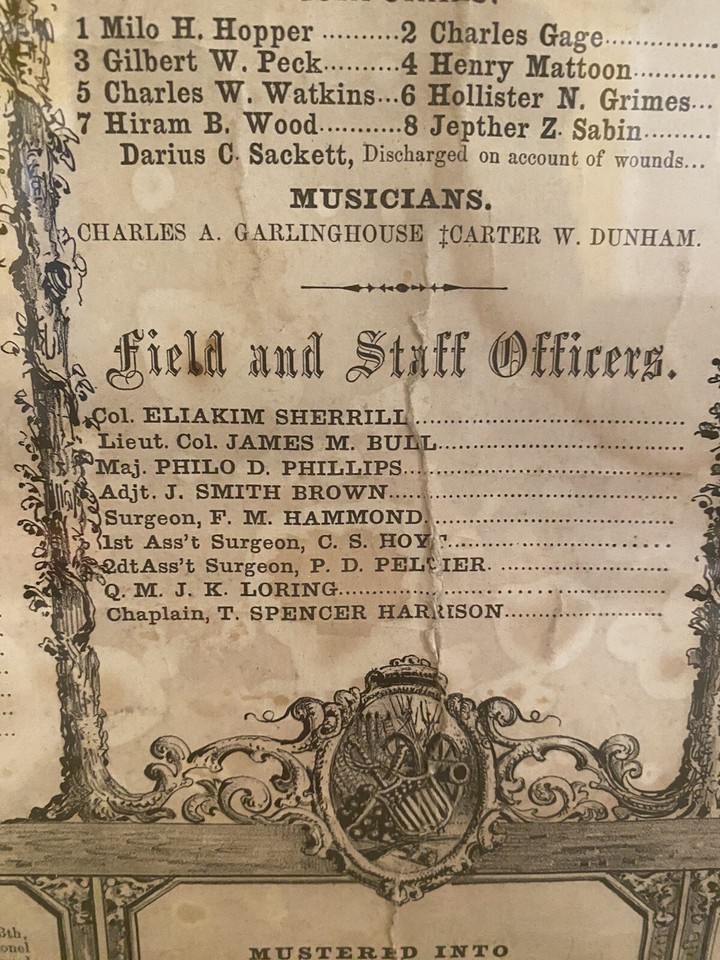 1 Milo H. Hopper ..........2 Charles Gage..............
3 Gilbert W. Peck..........4 Henry Mattoon...........
5 Charles W. Watkins...6 Hollister N. Grimes...
7 Hiram B. Wood...........8 Jepther Z. Sabin.........
Darius C. Sackett, Discharged on account of wounds...
MUSICIANS.
CHARLES A. GARLINGHOUSE ‡CARTER W. DUNHAM.
Field and Staff Officers.
Col. ELIAKIM SHERRILL......................................
Lieut. Col. JAMES M. BULL..................................
Maj. PHILO D. PHILLIPS.......................................
Adjt. J. SMITH BROWN........................................
Surgeon, F. M. HAMMOND...................................
1st Ass't Surgeon, C. S. HOYT..............................
2dtAss't Surgeon, P. D. PELTIER. ........................
Q. M. J. K. LORING.............................................
Chaplain, T. SPENCER HARRISON......................
8th,
onel
MUSTERED INTO